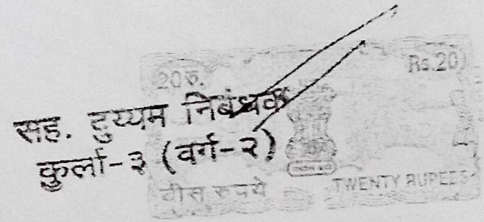 20रु. Rs.20
सह. दुय्यम निबंधक
कुर्ला-३ (वर्ग-२)
बीस रुपये TWENTY RUPEES